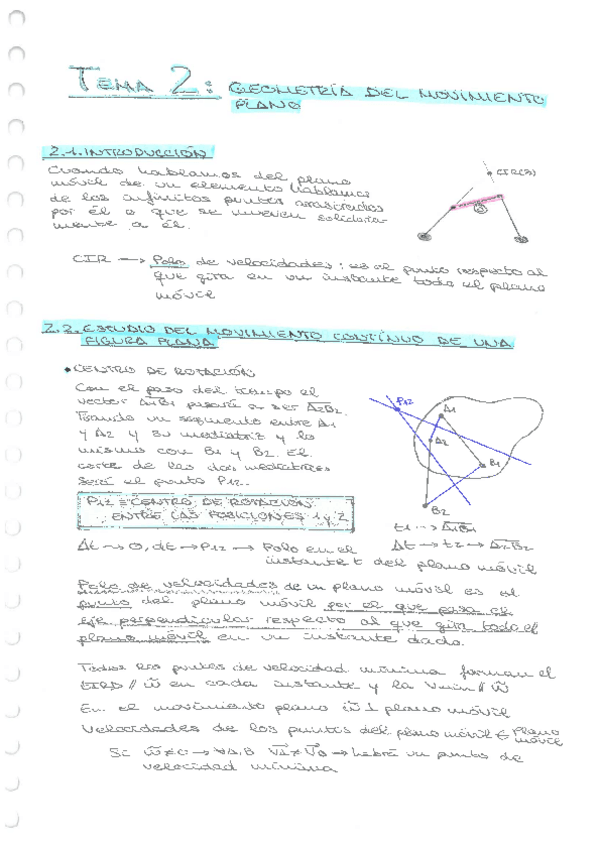 TEMA 2: GEOMETRÍA DEL MOVIMIENTO
PLANO
2.1. INTRODUCCIÓN
Cuando hablamos del plano
móvil de un elemento hablamos
de los infinitos puntos arrastrados
por él o que se mueven solidaria-
mente a él.
CIR(3)
3
CIR → Polo de velocidades: es el punto respecto al
que gira en un instante todo el plano
móvil
2.2. ESTUDIO DEL MOVIMIENTO CONTÍNUO DE UNA
FIGURA PLANA
• CENTRO DE ROTACIÓN
Con el paso del tiempo el
vector A1B1 pasará a ser A2B2.
Trazando un segmento entre A1
y A2 y su mediatriz y lo
mismo con B1 y B2. El
corte de las dos mediatrices
será el punto P12.
P12
A1
A2
B1
B2
P12 ≡ CENTRO DE ROTACIÓN
ENTRE LAS POSICIONES 1 y 2
t1 → A1B1
Δt → t2 → A2B2
Δt → 0, dt → P12 → Polo en el
instante t del plano móvil
Polo de velocidades de un plano móvil es el
punto del plano móvil por el que pasa el
eje perpendicular respecto al que gira todo el
plano móvil en un instante dado.
Todos los puntos de velocidad mínima forman el
EIRD // ω⃗ en cada instante y la Vmin // ω⃗
En el movimiento plano ω⃗ ⊥ plano móvil
Velocidades de los puntos del plano móvil ∈ plano
móvil
Si ω⃗ ≠ 0 → ∀A,B V⃗A ≠ V⃗B → habrá un punto de
velocidad mínima